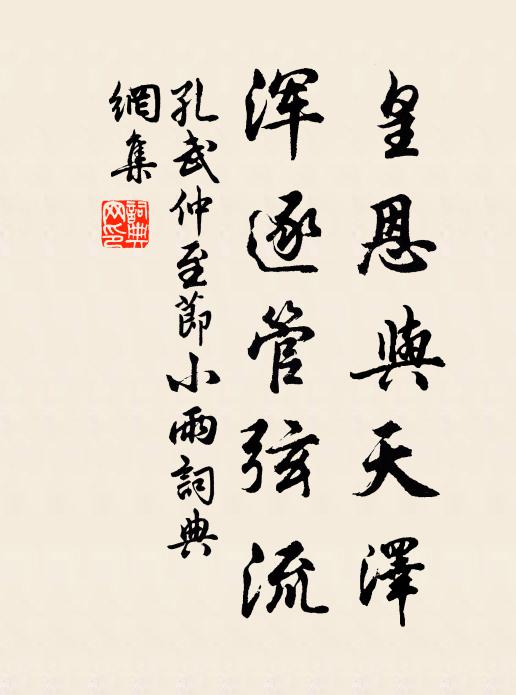 皇恩與天澤
浑逐管弦流
孔武仲至節小雨詞典
網集
詞典网印